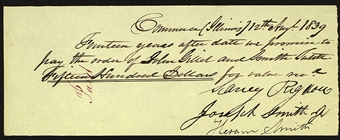 Commerce (Illinois) 12th Augt 1839
Fourteen years after date we promise to
pay the order of John Gillet and Smith Tuttle
Fifteen Hundred Dollars for value recd
Sidney Rigdon
Joseph Smith Jr
Hyrum Smith